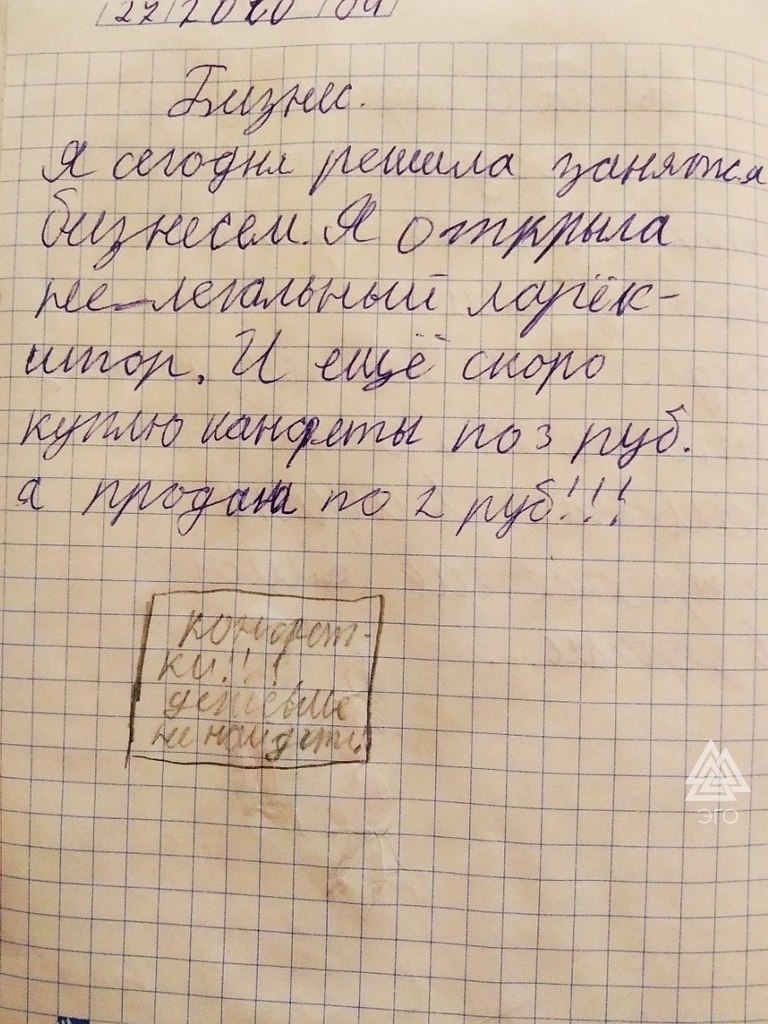 27 2020 04
Бизнес.
Я сегодня решила занятся
бизнесем. Я открыла
не-легальный ларёк-
штор. И ещё скоро
куплю канфеты по 3 руб.
а продам по 2 руб!!!
конфет-
ки!!!
дешевле
не найдёти!
эго